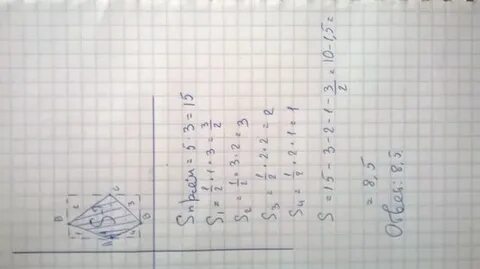 S прям = 5·3=15
S₁ = 1/2 · 1 · 3 = 3/2
S₂ = 1/2 · 3 · 2 = 3
S₃ = 1/2 · 2 · 2 = 2
S₄ = 1/2 · 2 · 1 = 1
S = 15 - 3 - 2 - 1 - 3/2 = 10 - 1,5 =
= 8,5
Ответ: 8,5.